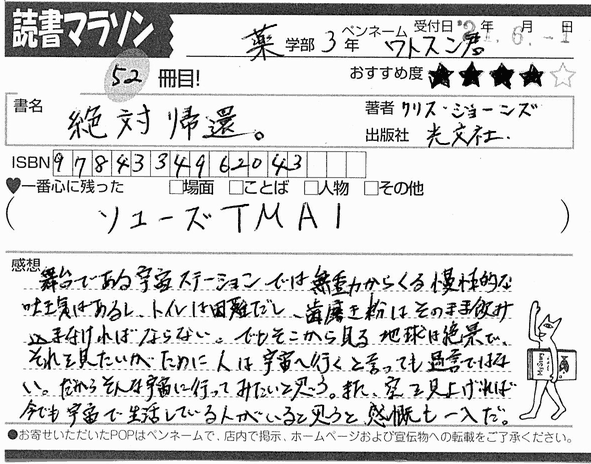 読書マラソン
薬学部3年 ペンネーム ワトスン君 受付日 '21年6月-1日
52冊目! おすすめ度 ★★★★☆
書名 絶対帰還。 著者 クリス・ジョーンズ
出版社 光文社.
ISBN 9784334962043
♥一番心に残った □場面 □ことば □人物 □その他
( ソユーズTMA1 )
感想 舞台である宇宙ステーションでは無重力からくる慢性的な
吐き気はあるし、トイレは困難だし、歯磨き粉はそのまま飲み
込まなければならない。でもそこから見る地球は絶景で、
それを見たいがために人は宇宙へ行くと言っても過言ではな
い。だからそんな宇宙に行ってみたいと思う。また、空を見上げれば
今でも宇宙で生活している人がいると思うと感慨も一入だ。
●お寄せいただいたPOPはペンネームで、店内で掲示、ホームページおよび宣伝物への転載をご了承ください。